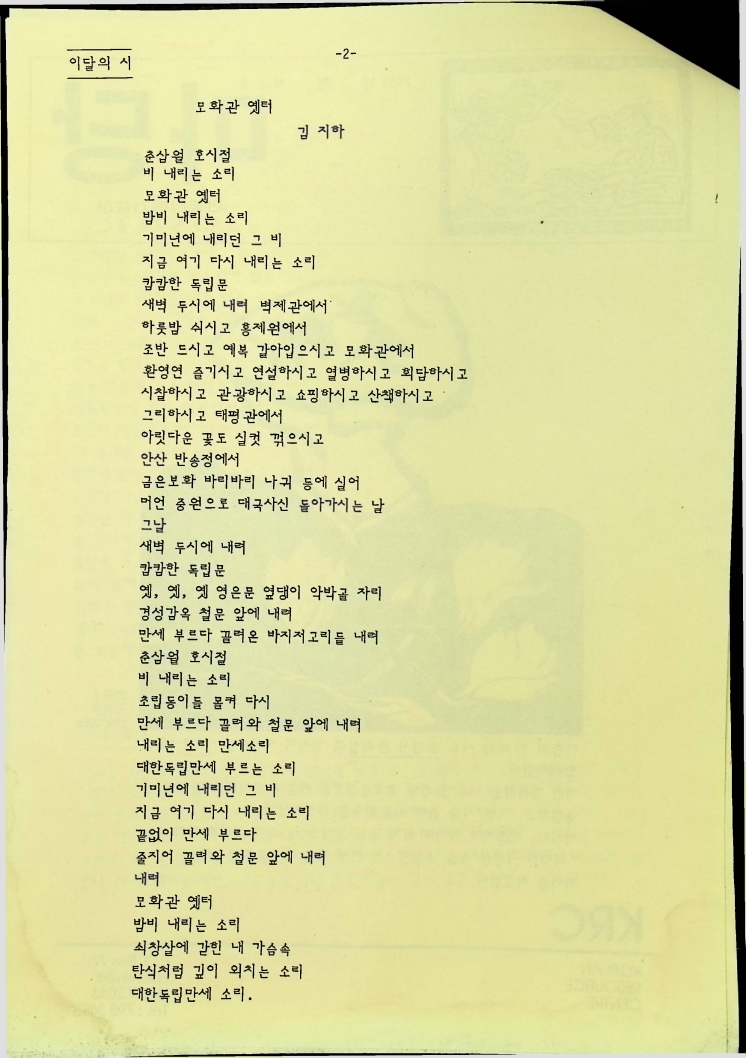 -2-
이달의 시
모화관 옛터
김 지하
춘삼월 호시절
비 내리는 소리
모화관 옛터
밤비 내리는 소리
기미년에 내리던 그 비
지금 여기 다시 내리는 소리
캄캄한 독립문
새벽 두시에 내려 벽제관에서
하룻밤 쉬시고 홍제원에서
조반 드시고 예복 갈아입으시고 모화관에서
환영연 즐기시고 연설하시고 열병하시고 회담하시고
시찰하시고 관광하시고 쇼핑하시고 산책하시고
그리하시고 태평관에서
아릿다운 꽃도 실컷 꺾으시고
안산 반송정에서
금은보화 바리바리 나귀 등에 실어
머언 중원으로 대국사신 돌아가시는 날
그날
새벽 두시에 내려
캄캄한 독립문
옛, 옛, 옛 영은문 옆댕이 악박골 자리
경성감옥 철문 앞에 내려
만세 부르다 끌려온 바지저고리들 내려
춘삼월 호시절
비 내리는 소리
초립동이들 몰켜 다시
만세 부르다 끌려와 철문 앞에 내려
내리는 소리 만세소리
대한독립만세 부르는 소리
기미년에 내리던 그 비
지금 여기 다시 내리는 소리
끝없이 만세 부르다
줄지어 끌려와 철문 앞에 내려
내려
모화관 옛터
밤비 내리는 소리
쇠창살에 갇힌 내 가슴속
탄식처럼 깊이 외치는 소리
대한독립만세 소리.